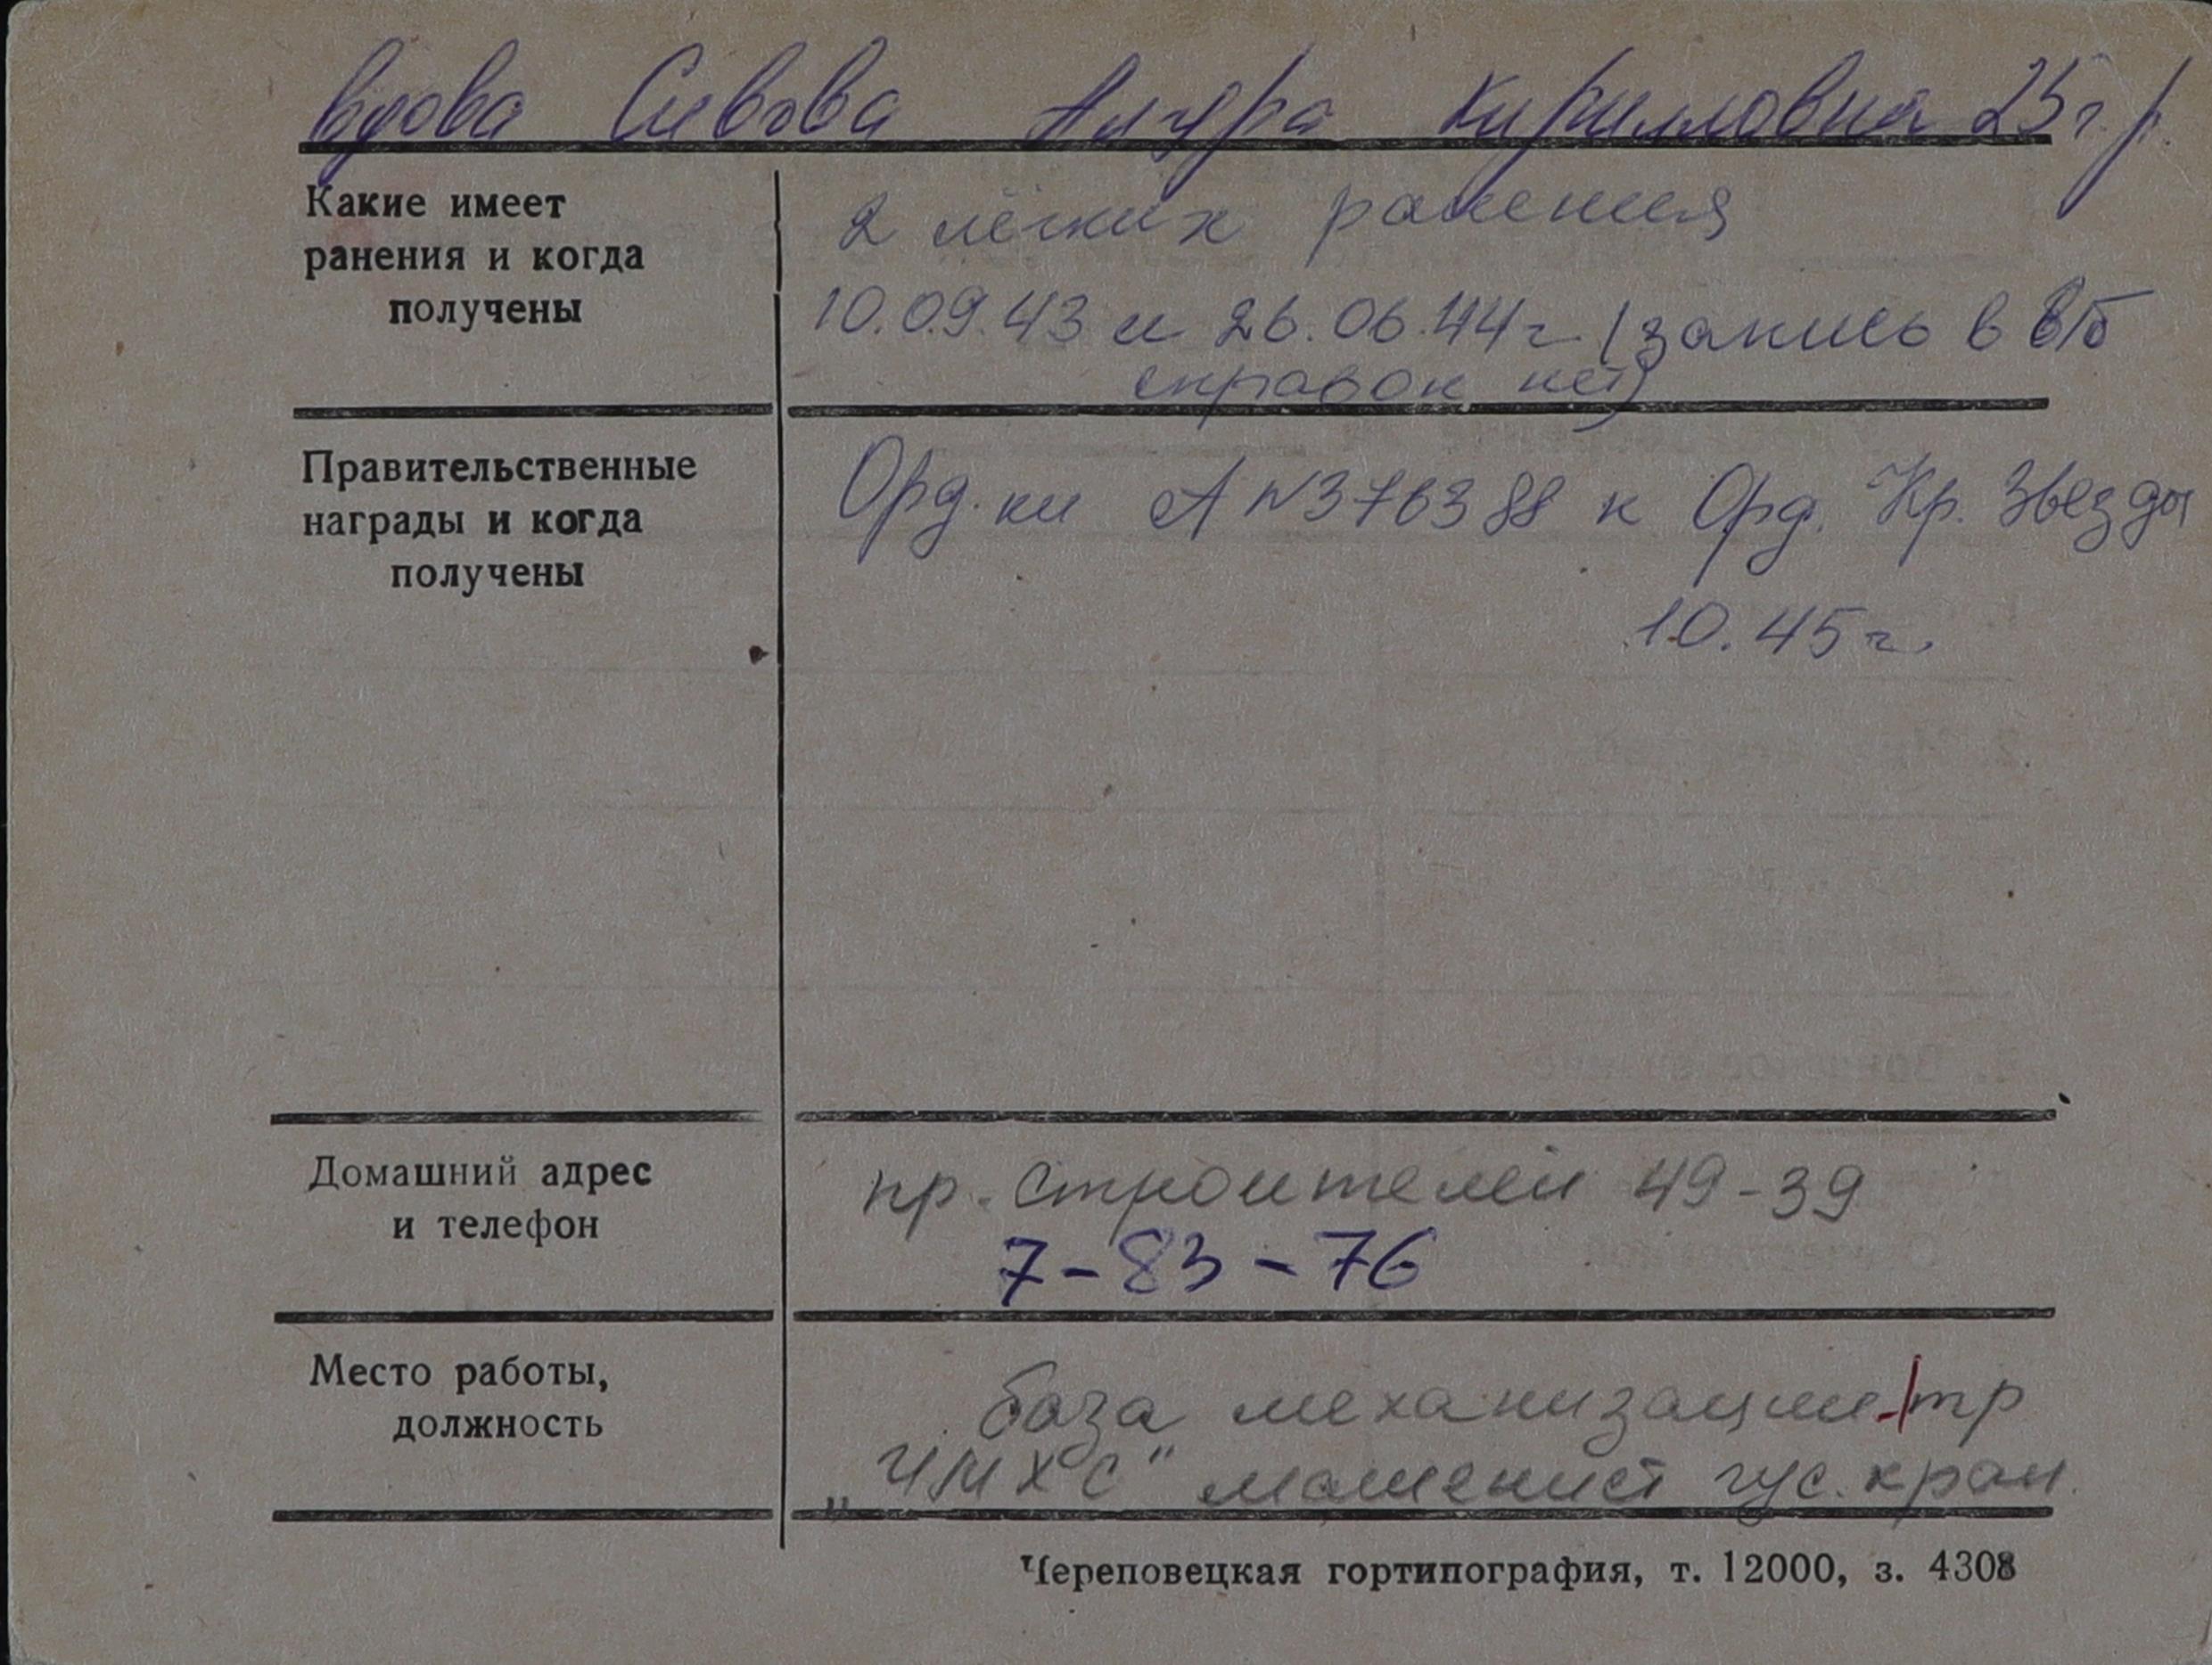 вдова Сивова Кирилловна 25 г.р.
Какие имеет
ранения и когда
получены
2 лёгких ранения
10.09.43 и 26.06.44г (запись в в/б
справок нет)
Правительственные
награды и когда
получены
Орд. кн А №376388 к Орд. Кр. Звезды
10.45г.
Домашний адрес
и телефон
пр. Строителей 49-39
7-83-76
Место работы,
должность
база механизации тр
„ЧМХС" машинист гус. кран.
Череповецкая гортипография, т. 12000, з. 4308